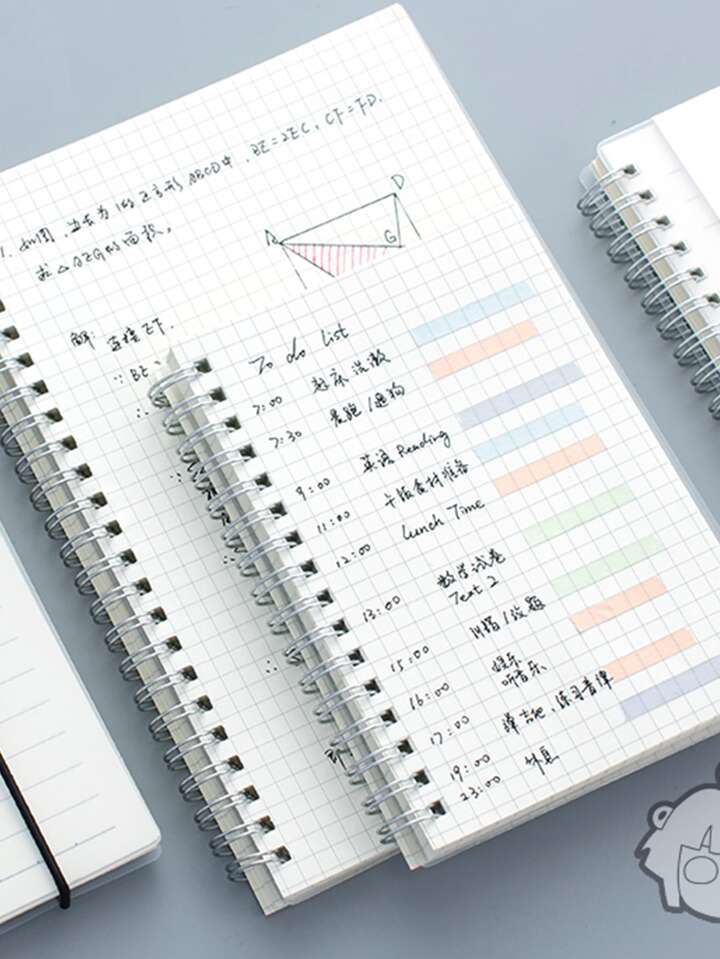 1. 如图,边长为1的正方形ABCD中,BE=2EC,CF=FD.
求△AEG的面积。
D
A
G
解:连接EF.
∵BE
∴
To do list
7:00 起床洗漱
7:30 晨跑/遛狗
9:00 英语Reading
11:00 午饭食材准备
12:00 Lunch Time
13:00 数学试卷
Text 2
15:00
16:00 娱乐
听音乐
17:00 弹吉他、练习音弹
19:00
23:00 休息